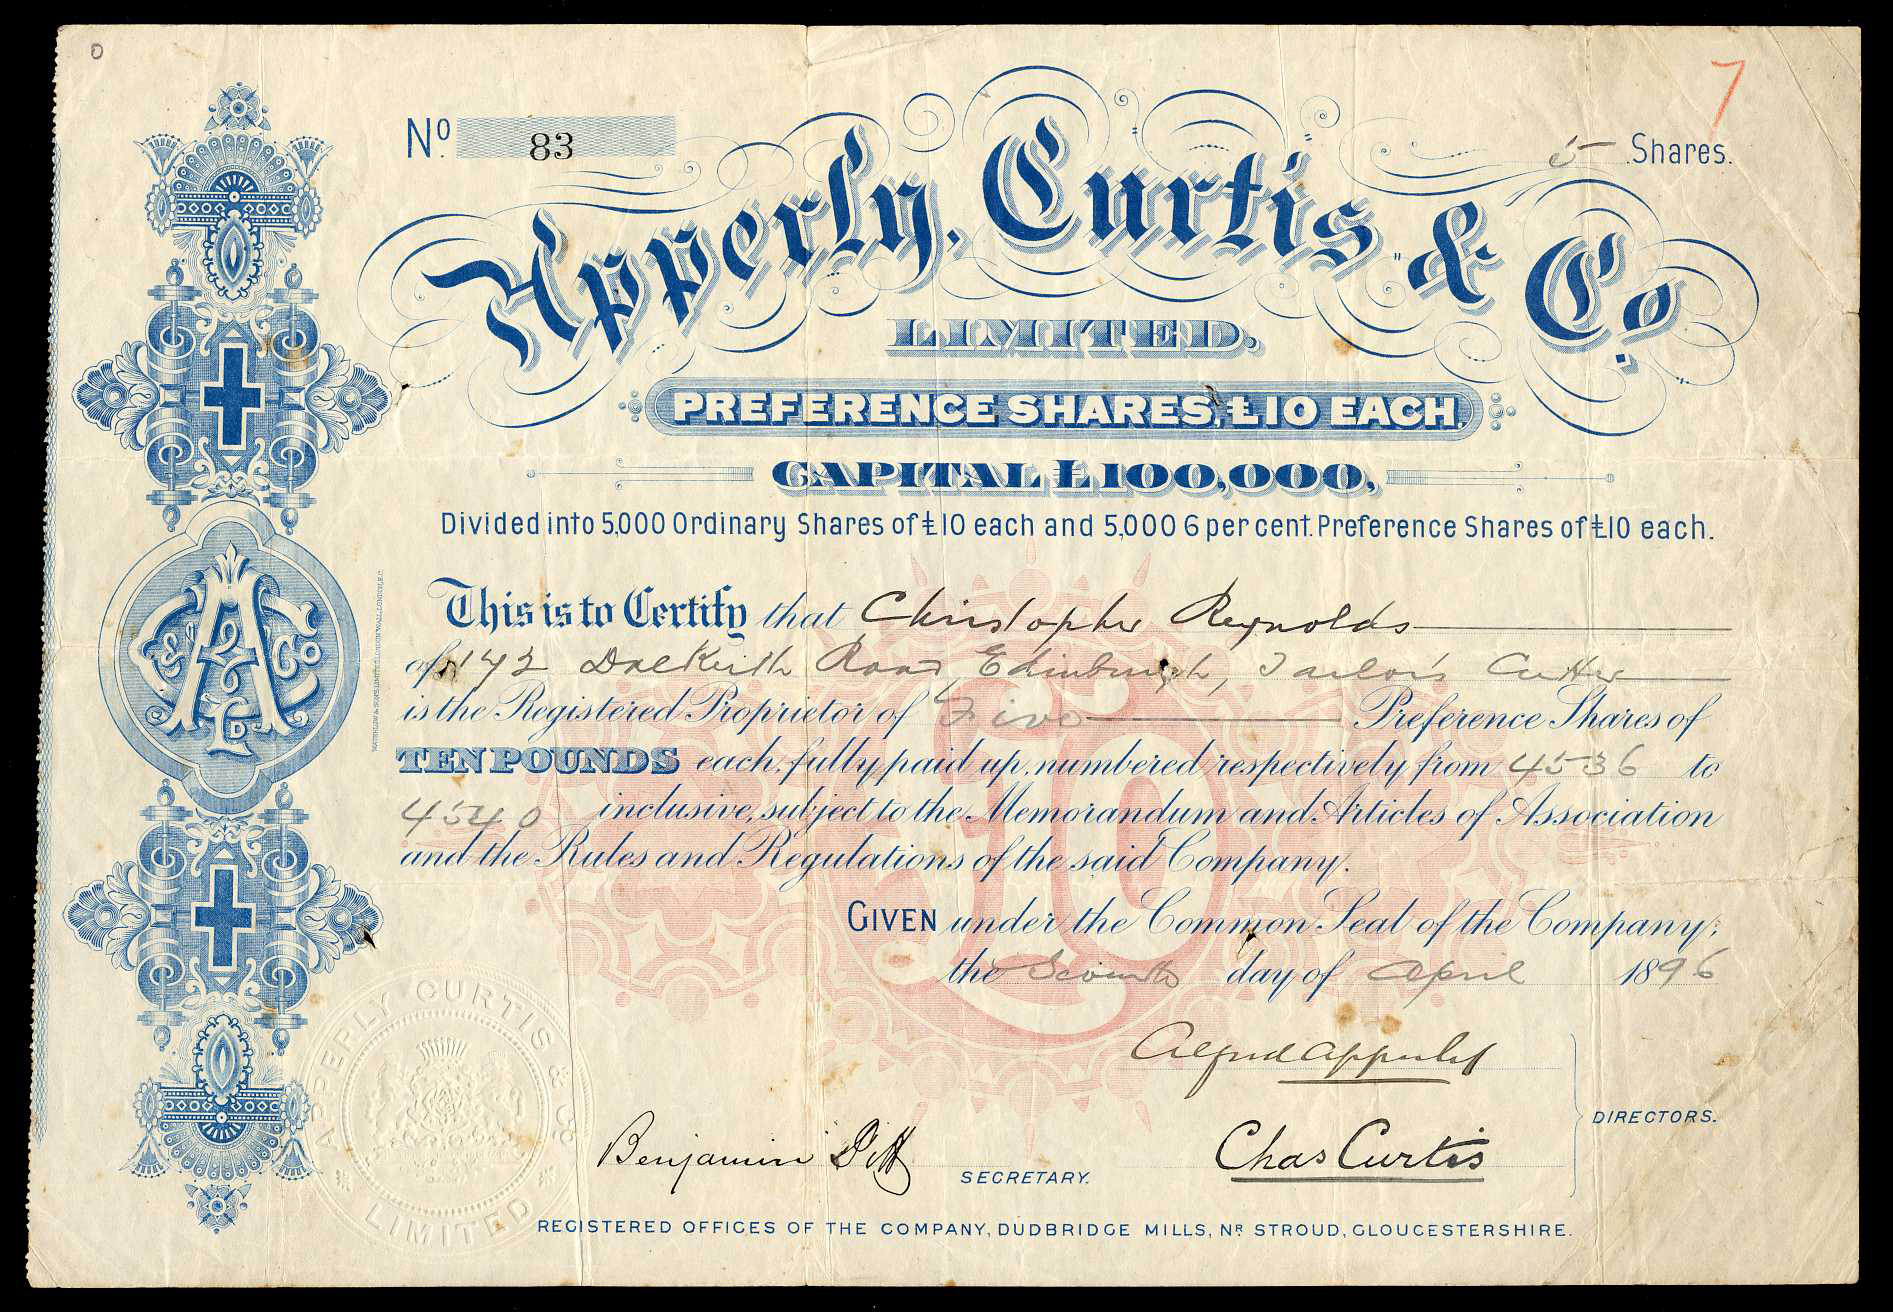 D
7
No. 83
5 Shares.
Apperly, Curtis & Co.
LIMITED.
PREFERENCE SHARES, £10 EACH.
CAPITAL £100,000,
Divided into 5,000 Ordinary Shares of £10 each and 5,000 6 per cent. Preference Shares of £10 each.
This is to Certify that Christopher Reynolds
of 142 Dalkeith Road, Edinburgh, Tailor's Cutter
is the Registered Proprietor of Five Preference Shares of
TEN POUNDS each, fully paid up, numbered respectively from 4536 to
4540 inclusive, subject to the Memorandum and Articles of Association
and the Rules and Regulations of the said Company.
GIVEN under the Common Seal of the Company;
the Fourth day of April 1896
£10
Alfred Apperly
Benjamin
SECRETARY.
Chas Curtis
DIRECTORS.
A C & Co Ld
APPERLY CURTIS & CO
LIMITED
REGISTERED OFFICES OF THE COMPANY, DUDBRIDGE MILLS, NR. STROUD, GLOUCESTERSHIRE.